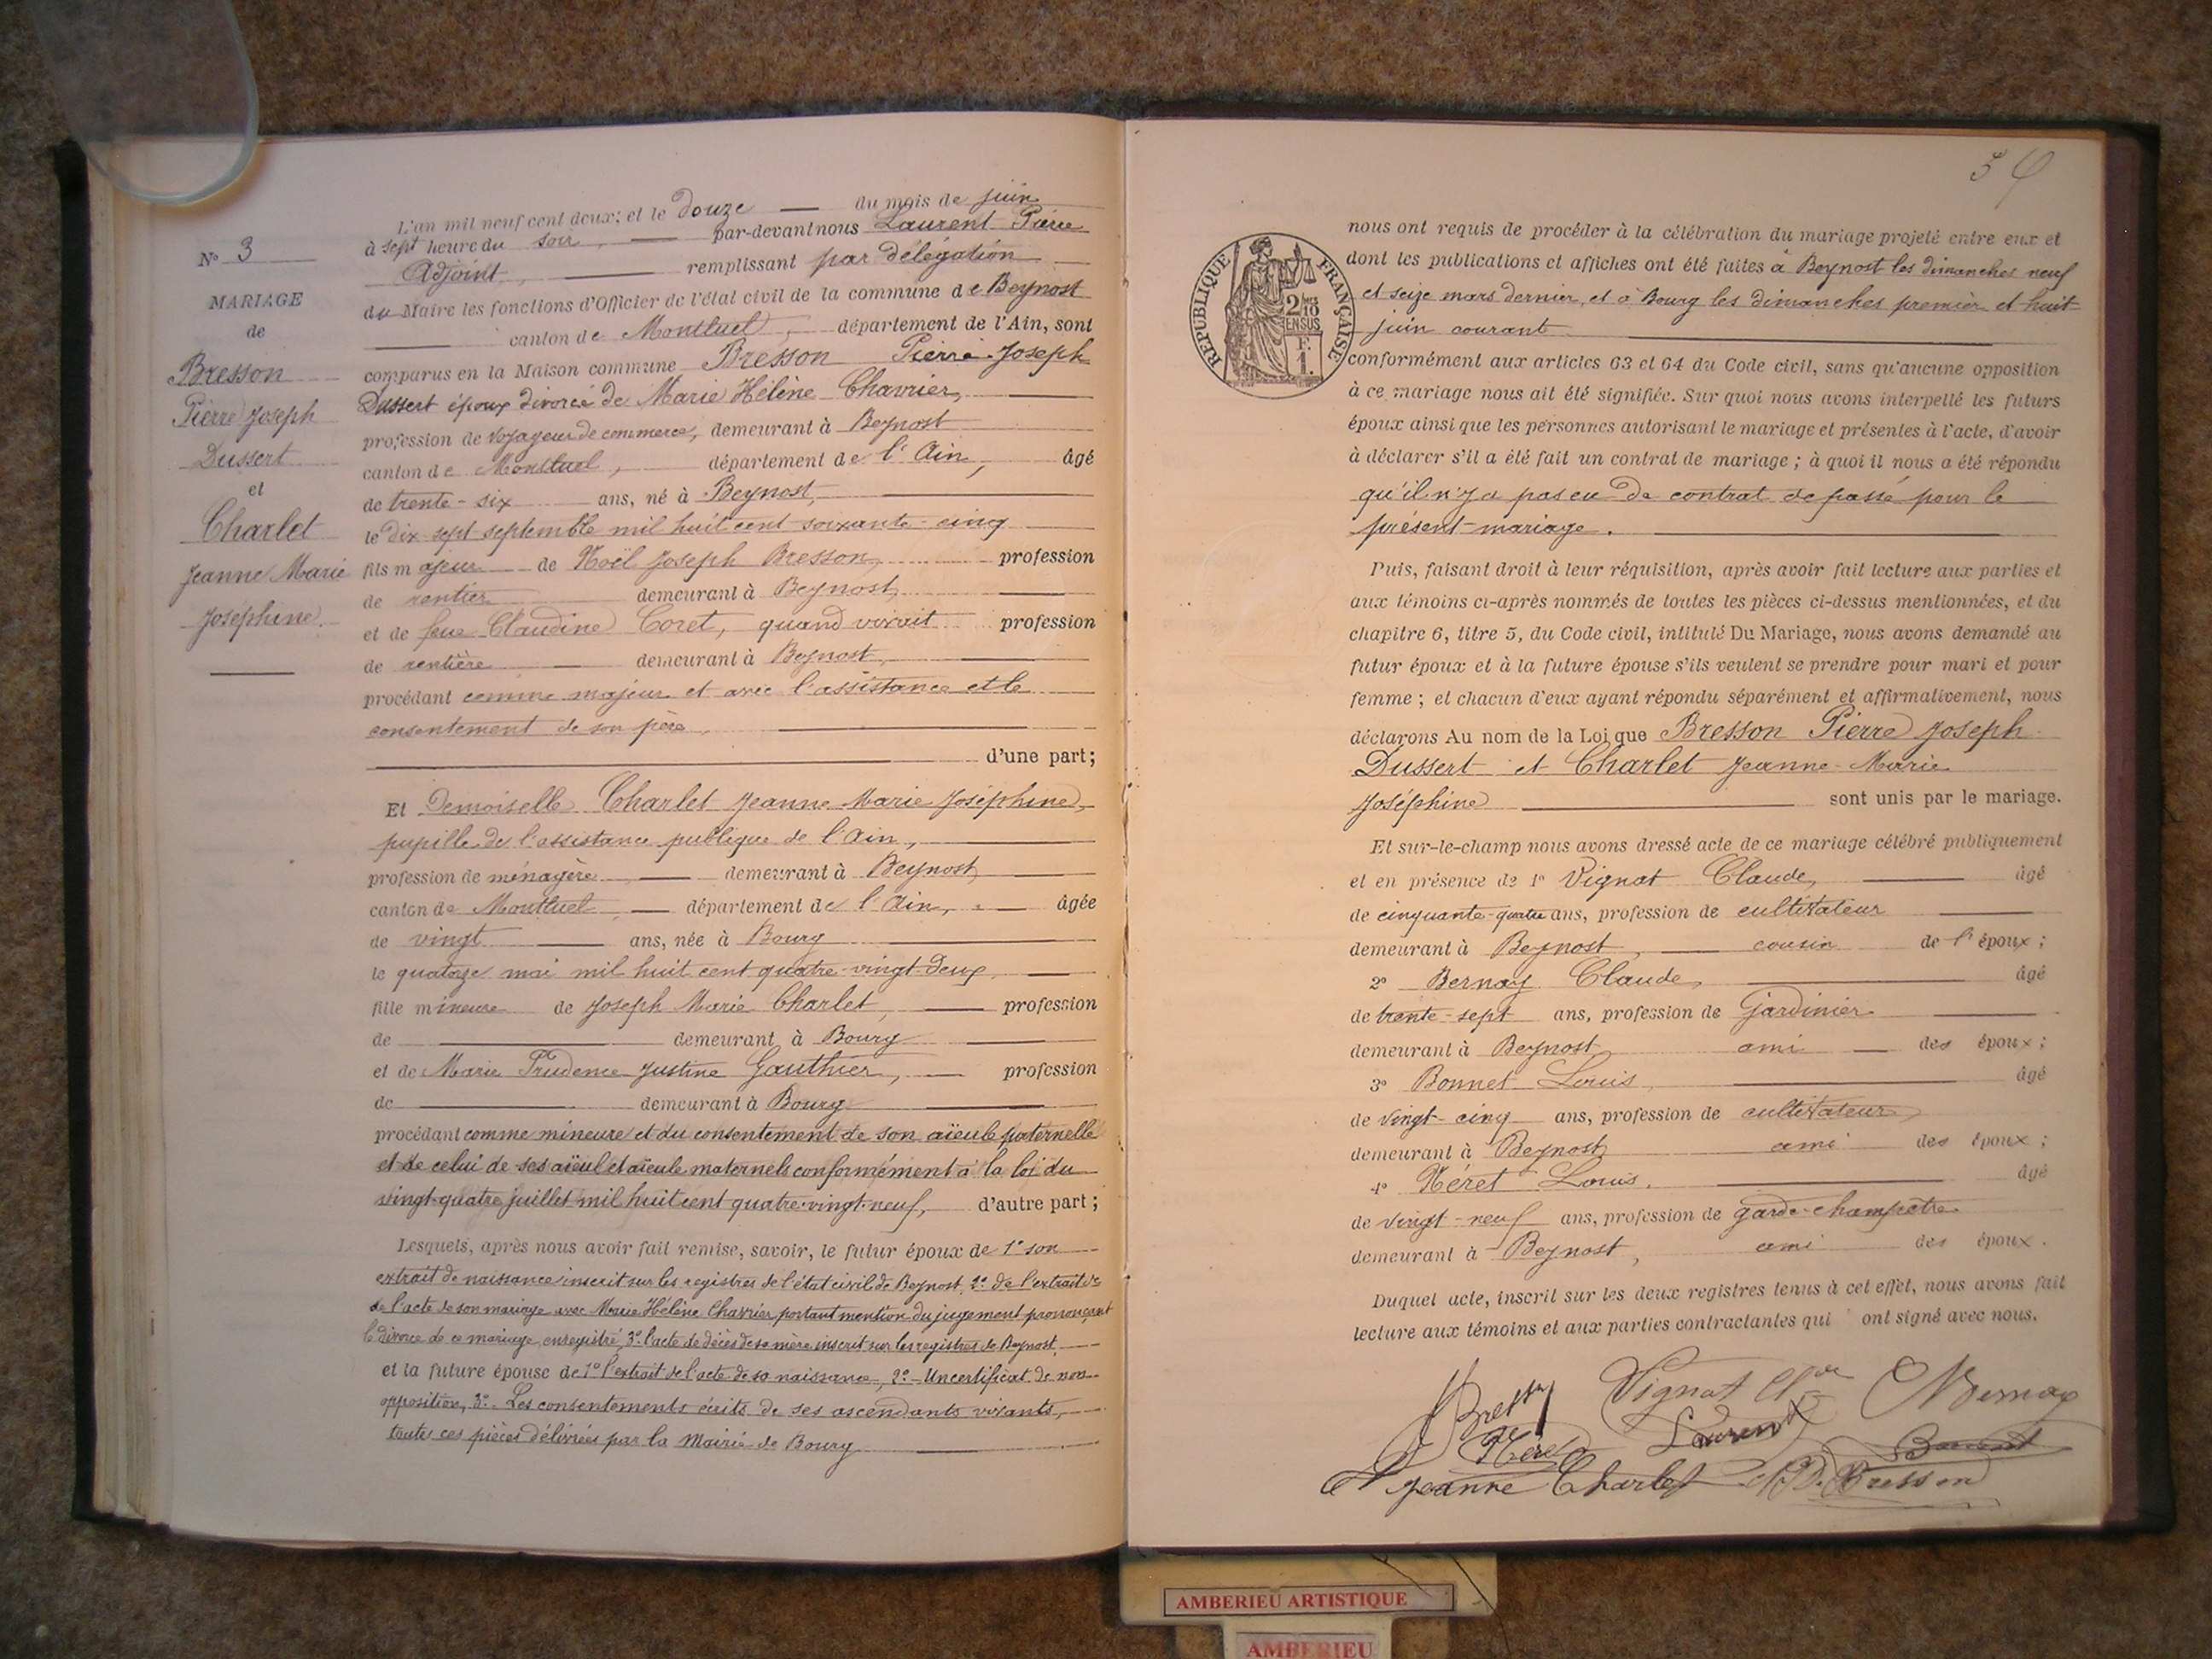 N° 3
MARIAGE
de
Bresson
Pierre Joseph
Dussert
et
Charlet
Jeanne Marie
Joséphine.
L'an mil neuf cent deux; et le Douze du mois de juin
à sept heure du soir, par-devant nous Laurent Pierre
Adjoint, remplissant par Délégation
du Maire les fonctions d'Officier de l'état civil de la commune de Beynost
canton de Montluel, département de l'Ain, sont
comparus en la Maison commune Bresson Pierre Joseph
Dussert époux divorcé de Marie Hélène Charrier,
profession de Voyageur de commerce, demeurant à Beynost
canton de Montluel, département de l'Ain, âgé
de trente-six ans, né à Beynost,
le dix sept septembre mil huit cent soixante-cinq
fils majeur de Noël Joseph Bresson, profession
de rentier demeurant à Beynost,
et de feue Claudine Coret, quand vivait profession
de rentière demeurant à Beynost,
procédant comme majeur et avec l'assistance et le
consentement de son père,
d'une part;
Et Demoiselle Charlet Jeanne Marie Joséphine,
pupille de l'assistance publique de l'Ain,
profession de ménagère demeurant à Beynost,
canton de Montluel, département de l'Ain, âgée
de vingt ans, née à Bourg
le quatorze mai mil huit cent quatre-vingt-deux,
fille mineure de Joseph Marie Charlet, profession
de demeurant à Bourg
et de Marie Prudence Justine Gauthier, profession
de demeurant à Bourg
procédant comme mineure et du consentement de son aïeule paternelle
et de celui de ses aïeul et aïeule maternels conformément à la loi du
vingt-quatre juillet mil huit cent quatre-vingt-neuf, d'autre part;
Lesquels, après nous avoir fait remise, savoir, le futur époux de 1° son
extrait de naissance inscrit sur les registres de l'état civil de Beynost, 2° de l'extrait de
de l'acte de son mariage avec Marie Hélène Charrier portant mention du jugement prononçant
le divorce de ce mariage enregistré, 3° l'acte de décès de sa mère inscrit sur les registres de Beynost,
et la future épouse de 1° l'extrait de l'acte de sa naissance, 2° - Un certificat de non-
opposition, 3° - Les consentements écrits de ses ascendants vivants,
toutes ces pièces délivrées par la Mairie de Bourg
54
RÉPUBLIQUE FRANÇAISE
2/10
EN SUS
F.
1.
nous ont requis de procéder à la célébration du mariage projeté entre eux et
dont les publications et affiches ont été faites à Beynost les dimanches neuf
et seize mars dernier, et à Bourg les dimanches premier et huit
juin courant
conformément aux articles 63 et 64 du Code civil, sans qu'aucune opposition
à ce mariage nous ait été signifiée. Sur quoi nous avons interpellé les futurs
époux ainsi que les personnes autorisant le mariage et présentes à l'acte, d'avoir
à déclarer s'il a été fait un contrat de mariage; à quoi il nous a été répondu
qu'il n'y a pas eu de contrat de passé pour le
présent mariage.
Puis, faisant droit à leur réquisition, après avoir fait lecture aux parties et
aux témoins ci-après nommés de toutes les pièces ci-dessus mentionnées, et du
chapitre 6, titre 5, du Code civil, intitulé Du Mariage, nous avons demandé au
futur époux et à la future épouse s'ils veulent se prendre pour mari et pour
femme; et chacun d'eux ayant répondu séparément et affirmativement, nous
déclarons Au nom de la Loi que Bresson Pierre Joseph
Dussert et Charlet Jeanne-Marie
Joséphine sont unis par le mariage.
Et sur-le-champ nous avons dressé acte de ce mariage célébré publiquement
et en présence de 1° Vignat Claude, âgé
de cinquante-quatre ans, profession de cultivateur
demeurant à Beynost, cousin de l'époux;
2° Bernay Claude, âgé
de trente-sept ans, profession de Jardinier
demeurant à Beynost, ami des époux;
3° Bonnet Louis, âgé
de vingt-cinq ans, profession de cultivateur,
demeurant à Beynost, ami des époux;
4° Néret Louis. âgé
de vingt-neuf ans, profession de garde-champêtre
demeurant à Beynost, ami des époux.
Duquel acte, inscrit sur les deux registres tenus à cet effet, nous avons fait
lecture aux témoins et aux parties contractantes qui ont signé avec nous.
Vignat Bernay
Néret Laurent
Jeanne Charlet Bresson
AMBERIEU ARTISTIQUE
AMBERIEU